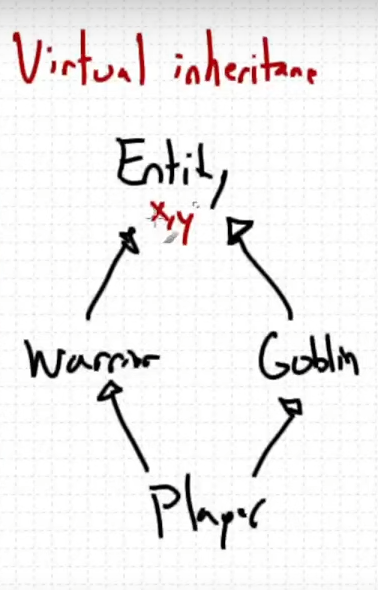 Virtual inheritane
Entity
x,y
Warrior Goblin
Player